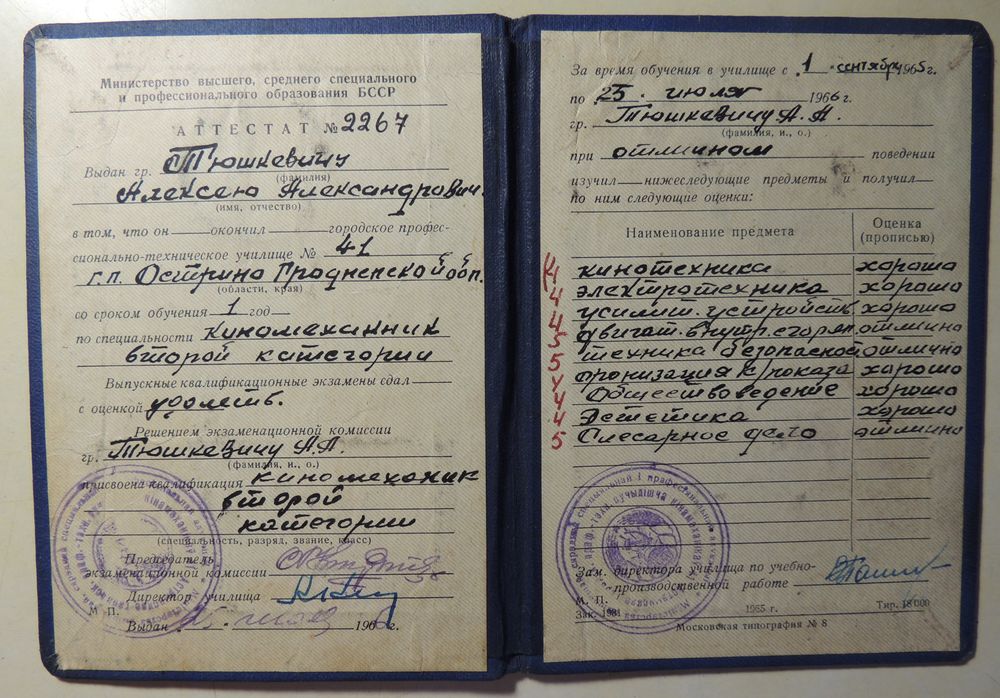 Министерство высшего, среднего специального
и профессионального образования БССР
АТТЕСТАТ № 2267
Выдан гр. Тюшкевичу
(фамилия)
Алексею Александрович.
(имя, отчество)
в том, что он окончил городское профес-
сионально-техническое училище № 41
г.п. Острино Гродненской обл.
(области, края)
со сроком обучения 1 год
по специальности киномеханник
второй категории
Выпускные квалификационные экзамены сдал
с оценкой удолетв.
Решением экзаменационной комиссии
гр. Тюшкевичу А.А.
(фамилия, и., о.)
присвоена квалификация киномеханик
второй
категории
(специальность, разряд, звание, класс)
Председатель
экзаменационной комиссии
Директор училища
М. П.
Выдан 196 г.
За время обучения в училище с 1 сентября 1965г.
по 25 июля 1966г.
гр. Тюшкевичу А. А.
(фамилия, и., о.)
при отличном поведении
изучил нижеследующие предметы и получил
по ним следующие оценки:
Наименование предмета Оценка (прописью)
4 кинотехника хорошо
4 электротехника хорошо
4 усилит. устройств. хорошо
5 двигат. внутр. сгоран. отлично
5 техника безопасной отлично
4 хорошо
4 Обществоведение хорошо
4 Эстетика хорошо
5 Слесарное дело отлично
Зам. директора училища по учебно-
производственной работе
М. П.
Зак. 1981 1965 г. Тир. 18 000
Московская типография № 8